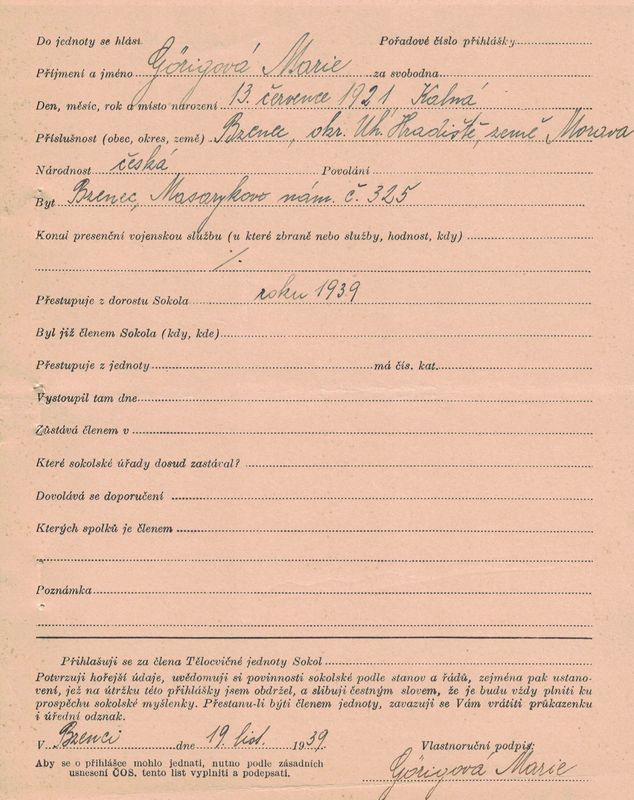 Do jednoty se hlásí Pořadové číslo přihlášky
Příjmení a jméno Görigová Marie za svobodna
Den, měsíc, rok a místo narození 13. července 1921, Kalná
Příslušnost (obec, okres, země) Bzenec, okr. Uh. Hradiště, země Morava
Národnost česká Povolání
Byt Bzenec, Masarykovo nám. č. 325
Konal presenční vojenskou službu (u které zbraně nebo služby, hodnost, kdy)
Přestupuje z dorostu Sokola roku 1939
Byl již členem Sokola (kdy, kde)
Přestupuje z jednoty má čís. kat.
Vystoupil tam dne
Zůstává členem v
Které sokolské úřady dosud zastával?
Dovolává se doporučení
Kterých spolků je členem
Poznámka
Přihlašuji se za člena Tělocvičné jednoty Sokol
Potvrzuji hořejší údaje, uvědomuji si povinnosti sokolské podle stanov a řádů, zejména pak ustano-
vení, jež na útržku této přihlášky jsem obdržel, a slibuji čestným slovem, že je budu vždy plniti ku
prospěchu sokolské myšlenky. Přestanu-li býti členem jednoty, zavazuji se Vám vrátiti průkazenku
i úřední odznak.
V Bzenci dne 19. list. 1939. Vlastnoruční podpis:
Aby se o přihlášce mohlo jednati, nutno podle zásadních
usnesení ČOS. tento list vyplniti a podepsati.
Görigová Marie